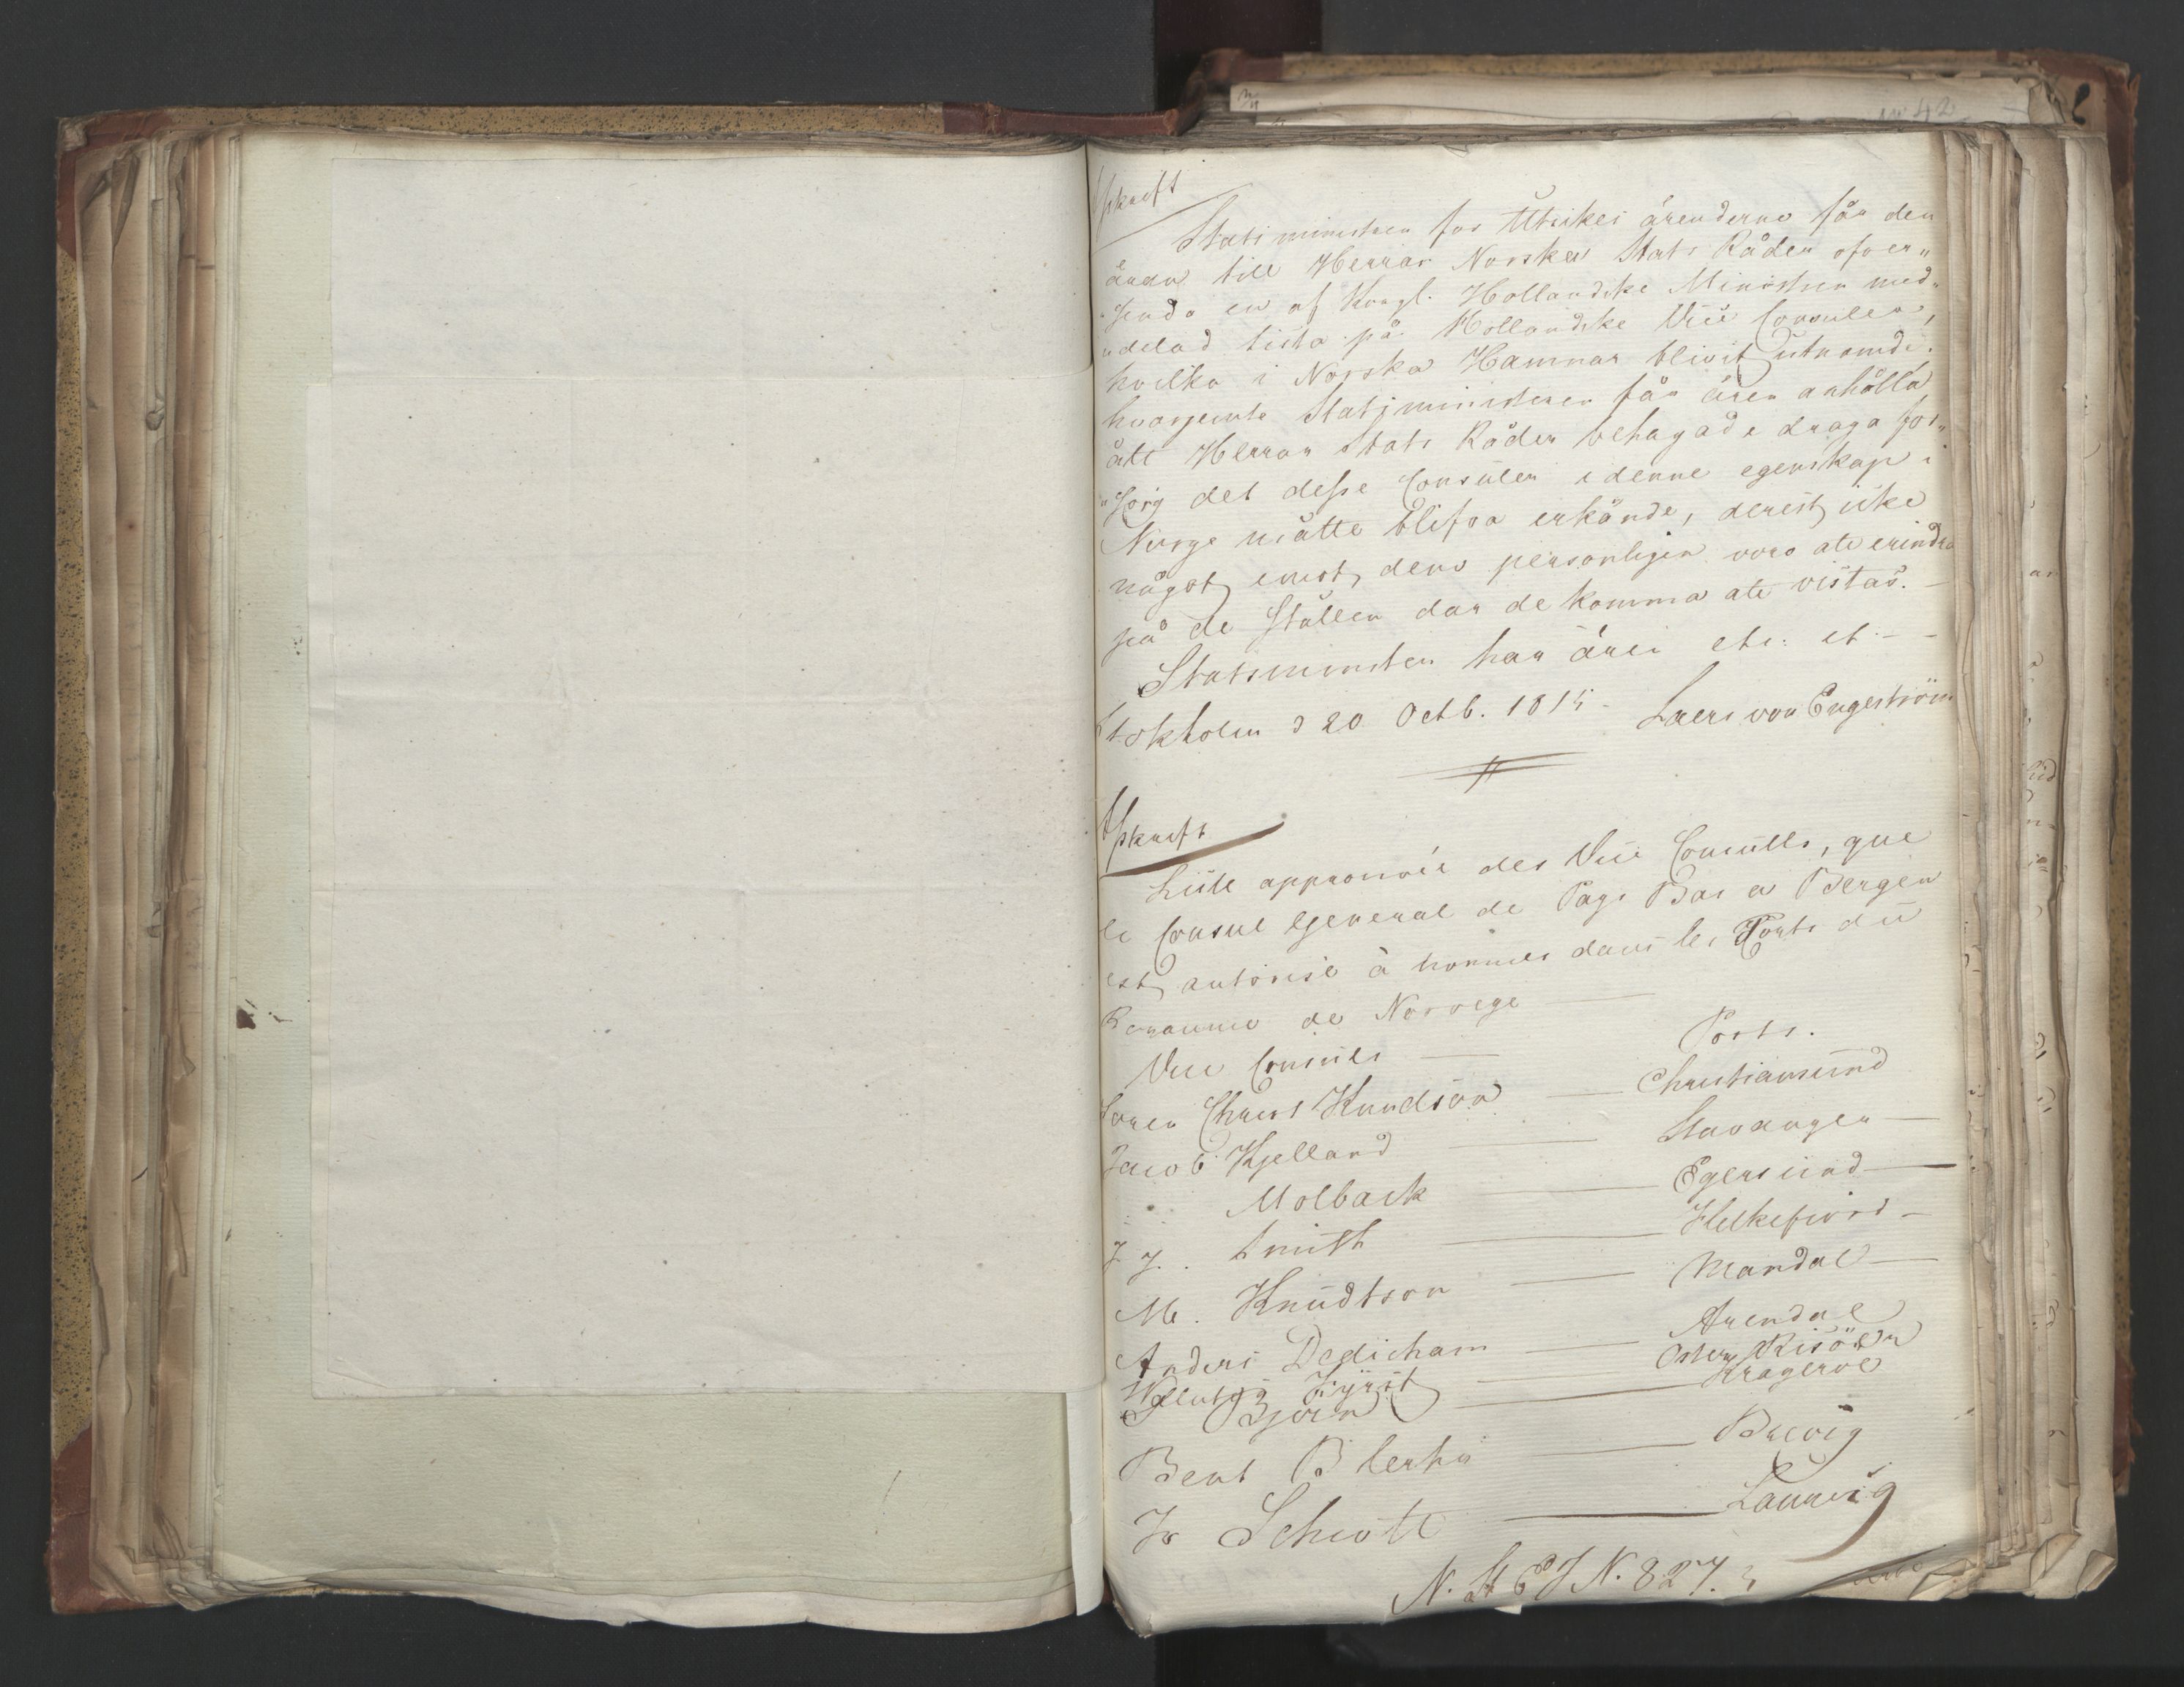 Afskrift
Statsministern for Utrikes ärenderne får den
äran till Herrar Norska Stats Råden ofver„
„sända en af Kongl. Hollandske Ministren med„
„delad lista på Hollandske Vice Consuler,
hvilka i Norska Hamnar blivit utnamde;
hvarjemte Statsministeren får ären anhålla
att Herrar Stats Råden behagade draga for„
„sorg det desse Consuler i denne egenskap i
Norge måtte blifva erkände, derest icke
något emot dens personligen vore att erindra
på de Stallen dar de komma att vistas. —
Statsministen har ären etc: et — —
Stokholm d 20 Octb. 1815 — Laers von Engeström
Afskrift
Liste approuvée des Vice Consulls, que
le Consul General de Pays Bas a Bergen
est autorisé à nommer dans les Ports du
Royaume de Norvege —
Vice Consules — Ports.
Soren Christ Knudson — Christiansund
Jacob Kjelland — Stavanger —
Molback — Egersund —
J J. Smith — Flekkefiord —
M. Knudtson — Mandal —
Anders Dedicham — Arendal
Fürst — Oster Risöer
Björn — Krageroe
Bent Blerhu — Brevig
Jo Schiott — Laurvig
N. St E J N. 827.